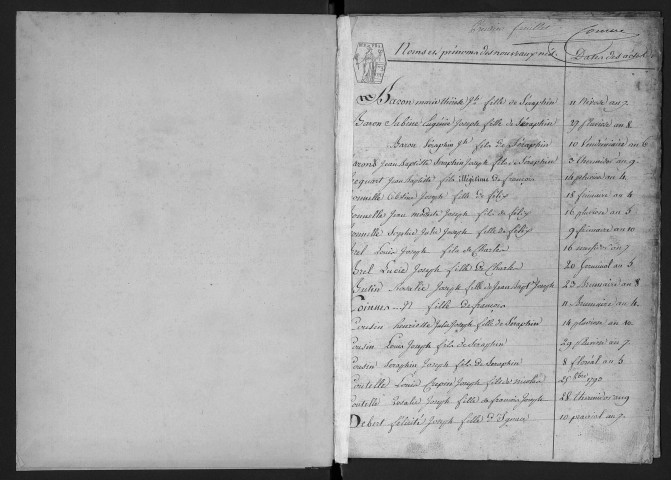 feuilles
Noms et prénoms des nouveaux nés. Dates des actes
Baron marie thérèse Jh fille de Séraphin 11 Nivose an 7
Baron Sabine Eugénie Joseph fille de Séraphin 29 pluviose an 8
Baron Séraphin Jh fils de Séraphin 10 Vendémiaire an 6
Baron Jean Baptiste Séraphin Joseph fils de Séraphin 3 thermidor an 9
Jean Baptiste fils légitime de françois 14 pluviose an 4
Célestine Joseph fille de félix 18 frimaire an 4
Jean modeste Joseph fils de félix 16 pluviose an 5
Sophie Julie Joseph fille de félix 9 frimaire an 10
Louis Joseph fils de Charles 16 messidor an 7
Lucie Joseph fille de Charles 20 Germinal an 3
Rosalie Joseph fille de Jean Bapt Joseph 23 Brumaire an 8
N fille de françois 11 Brumaire an 4
Cousin henriette Julie Joseph fille de Séraphin 14 pluviose an 10
Cousin Louis Joseph fils de Séraphin 29 pluviose an 7
Cousin Séraphin Joseph fils de Séraphin 8 floréal an 5
Coutelle Louis Crepin Joseph fils de nicolas 25 8bre 1792
Coutelle Rosalie Joseph fille de françois Joseph 28 thermidor an 9
Debert félicité Joseph fille d'Ignace 10 prairial an 7